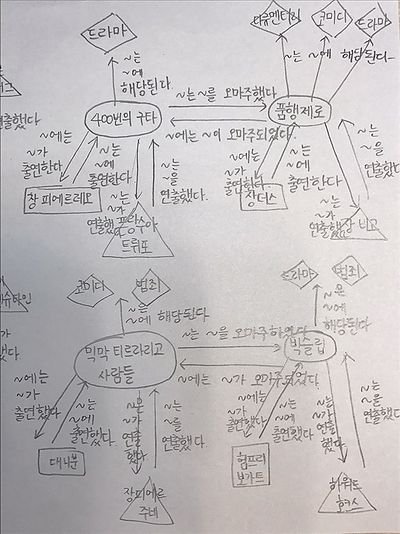 드라마
다큐멘터리
코미디
드라마
~는
~에
해당된다
~는 ~에 해당된다
연출했다
400번의 구타
~는 ~를 오마주했다
품행제로
~에는 ~이 오마주되었다.
~에는
~가
출연한다
~는
~에
출연한다
~는
~을
연출했다.
~에는
~가
출연한다.
~는
~에
출연한다
~는
~을
연출했다
장 피에르 레오
~는
~가
연출했
프랑수아
트뤼포
장 더스
~는
~가
연출했
장 비고
코미디
범죄
드라마
범죄
~은
~에 해당된다
~은
~에
해당된다
슈타인
믹막 티르라리고
사람들
~는 ~을 오마주하였다
빅슬립
~에는 ~가 오마주되었다
~에는
~가
출연했다
~는
~에
출연했다
~은
~가
연출
했다
~는
~을
연출했다.
~에는
~가
출연했다
~는
~에
출연했다
~는
~가
연출
했다
~는
~을
연출했다
대니분
장피에르
주네
험프리
보가트
하워드
혹스